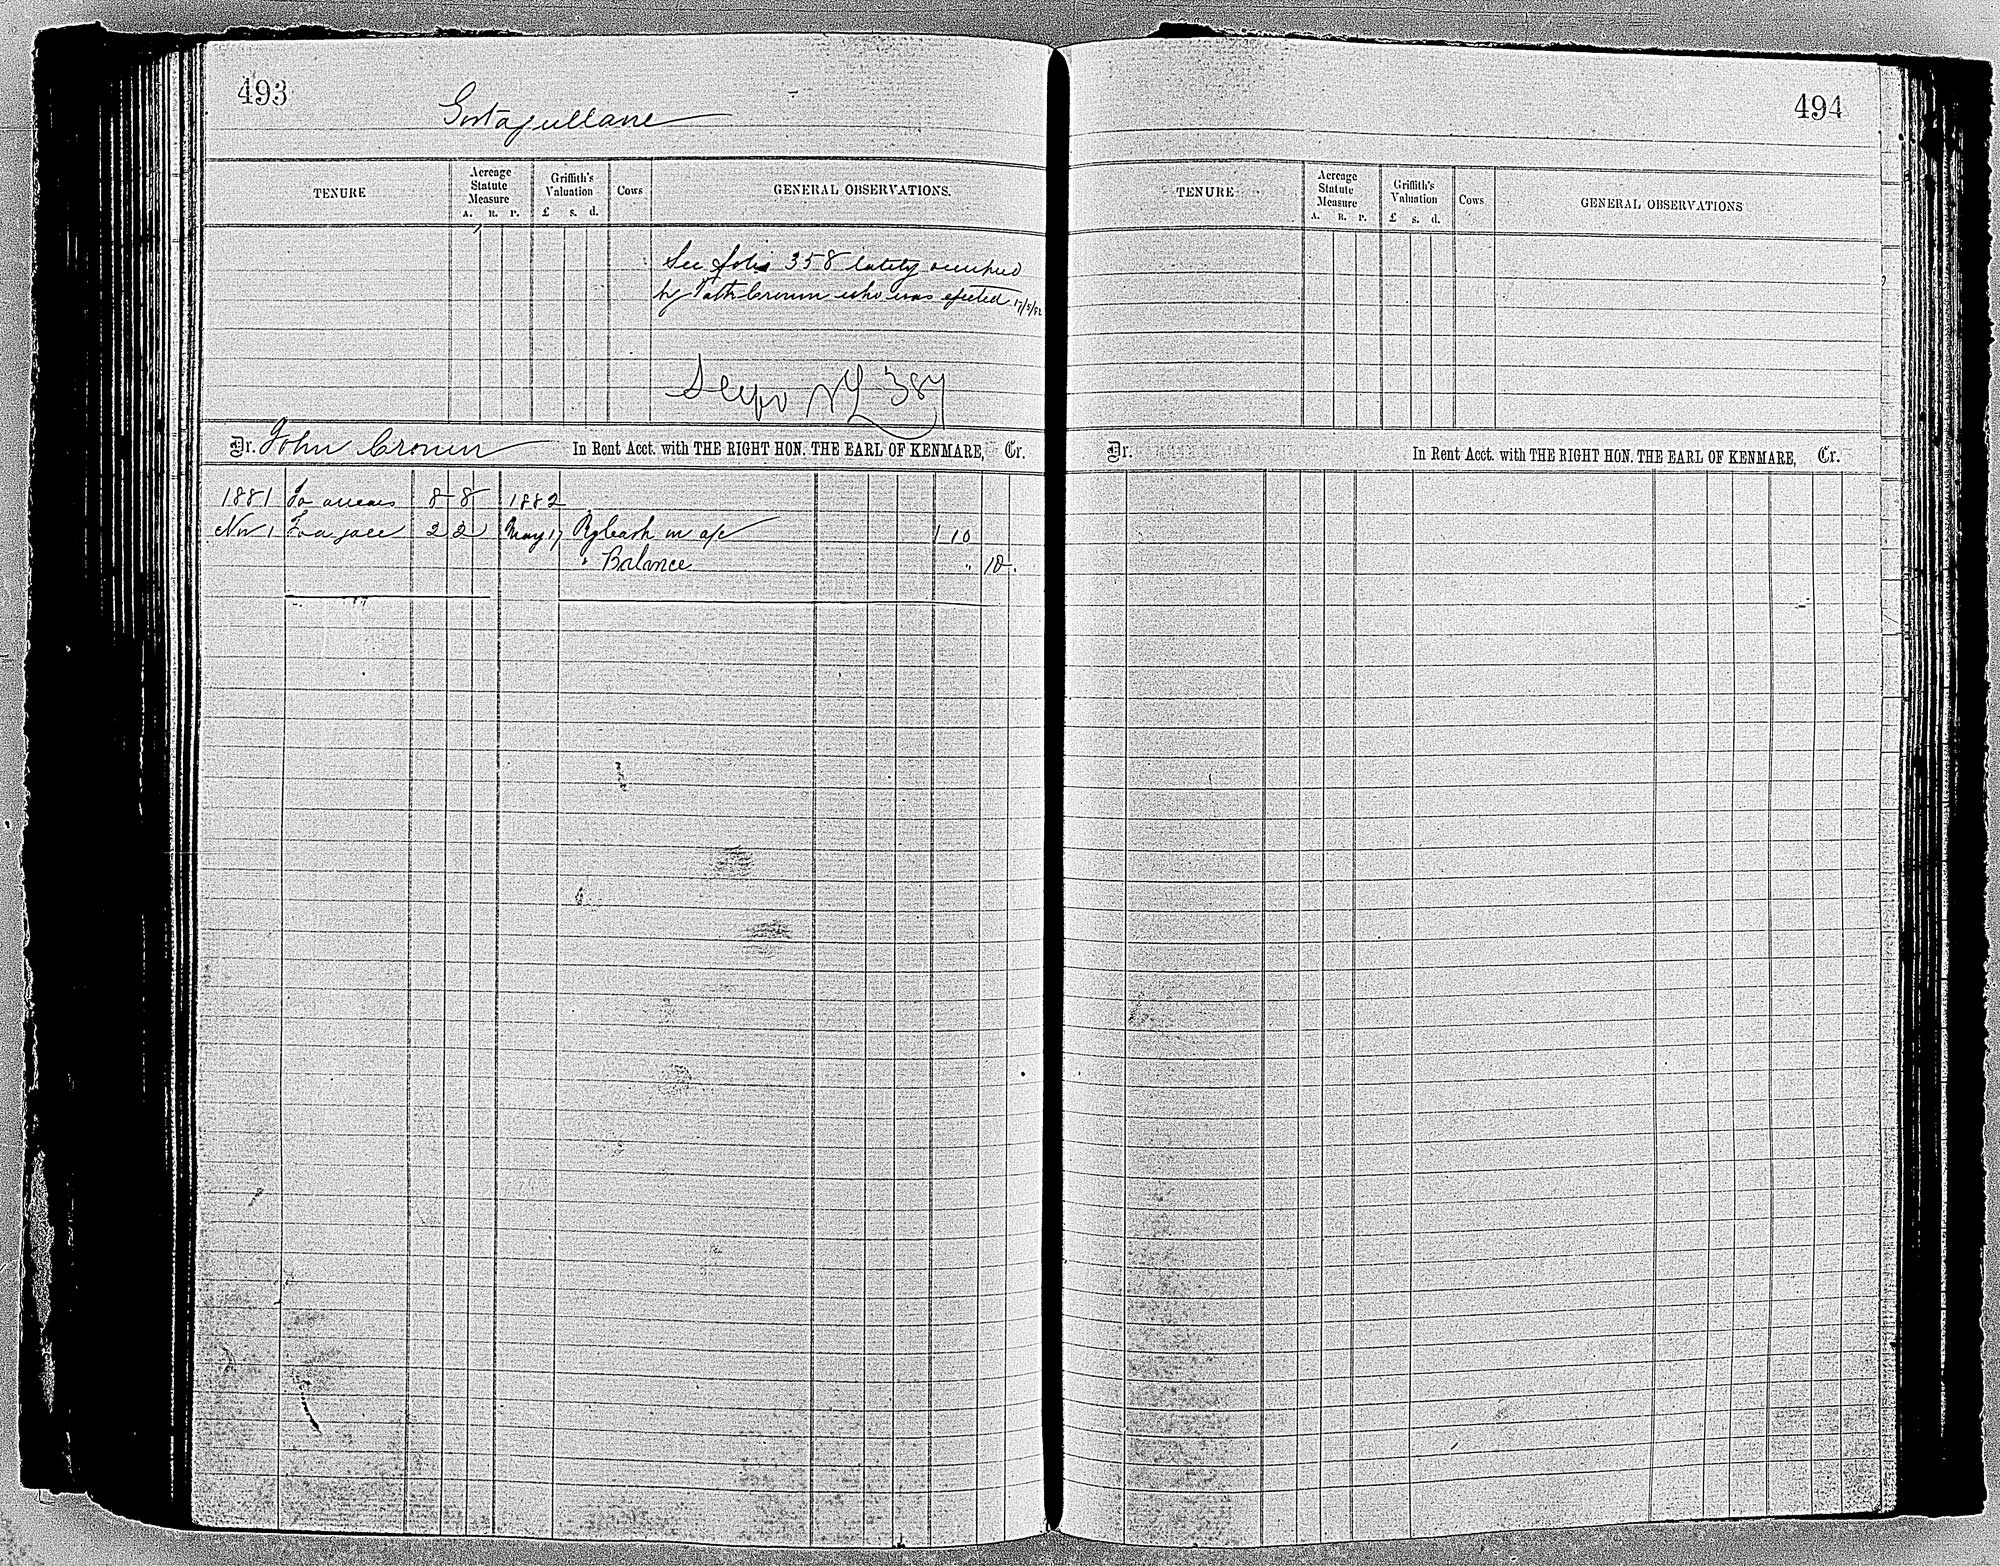 493
Gortagullane
TENURE
Acreage Statute Measure
A. R. P.
Griffith's Valuation
£ s. d.
Cows
GENERAL OBSERVATIONS.
See folio 358 lately occupied
by Patk Cronin who was ejected 17/5/82
387
Dr. John Cronin In Rent Acct. with THE RIGHT HON. THE EARL OF KENMARE, Cr.
1881 To arrears 8 8 1882
Nov 1 2 2 May 17 By Cash on a/c 1 10
" Balance " 10
494
TENURE
Acreage Statute Measure
A. R. P.
Griffith's Valuation
£ s. d.
Cows
GENERAL OBSERVATIONS
Dr. In Rent Acct. with THE RIGHT HON. THE EARL OF KENMARE, Cr.